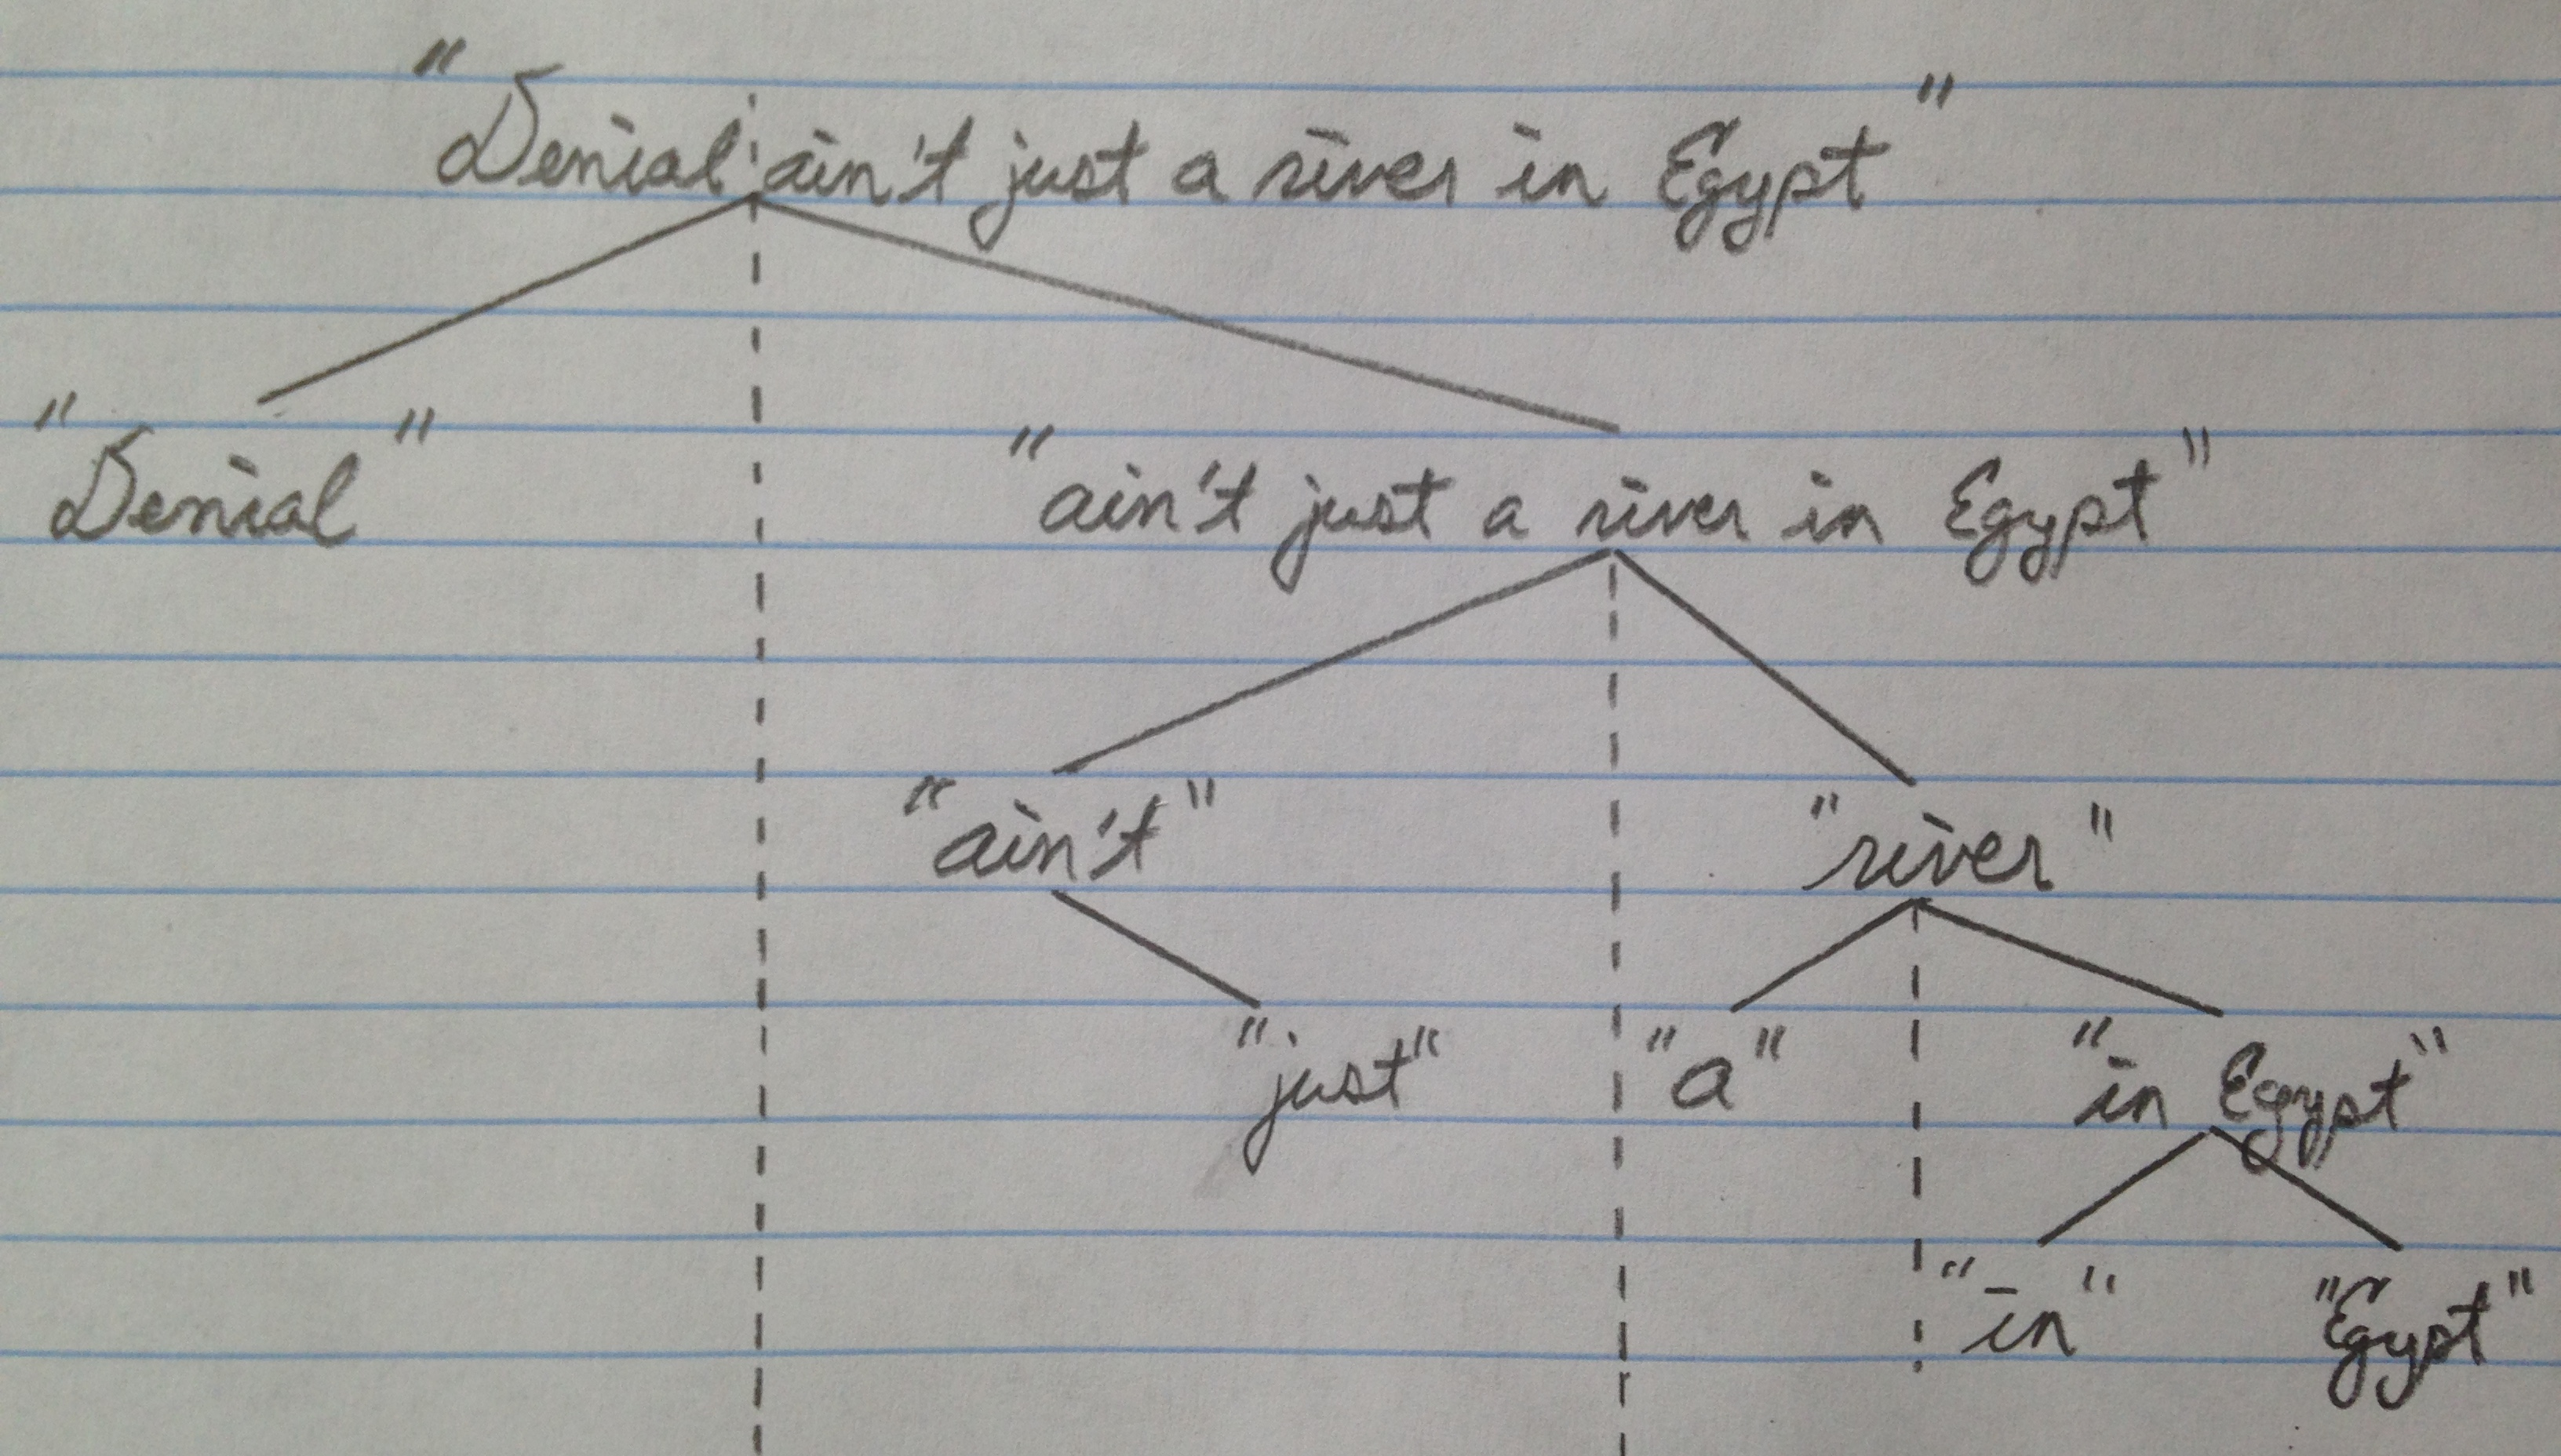 "Denial ain't just a river in Egypt"
"Denial" "ain't just a river in Egypt"
"ain't" "river"
"just" "a" "in Egypt"
"in" "Egypt"